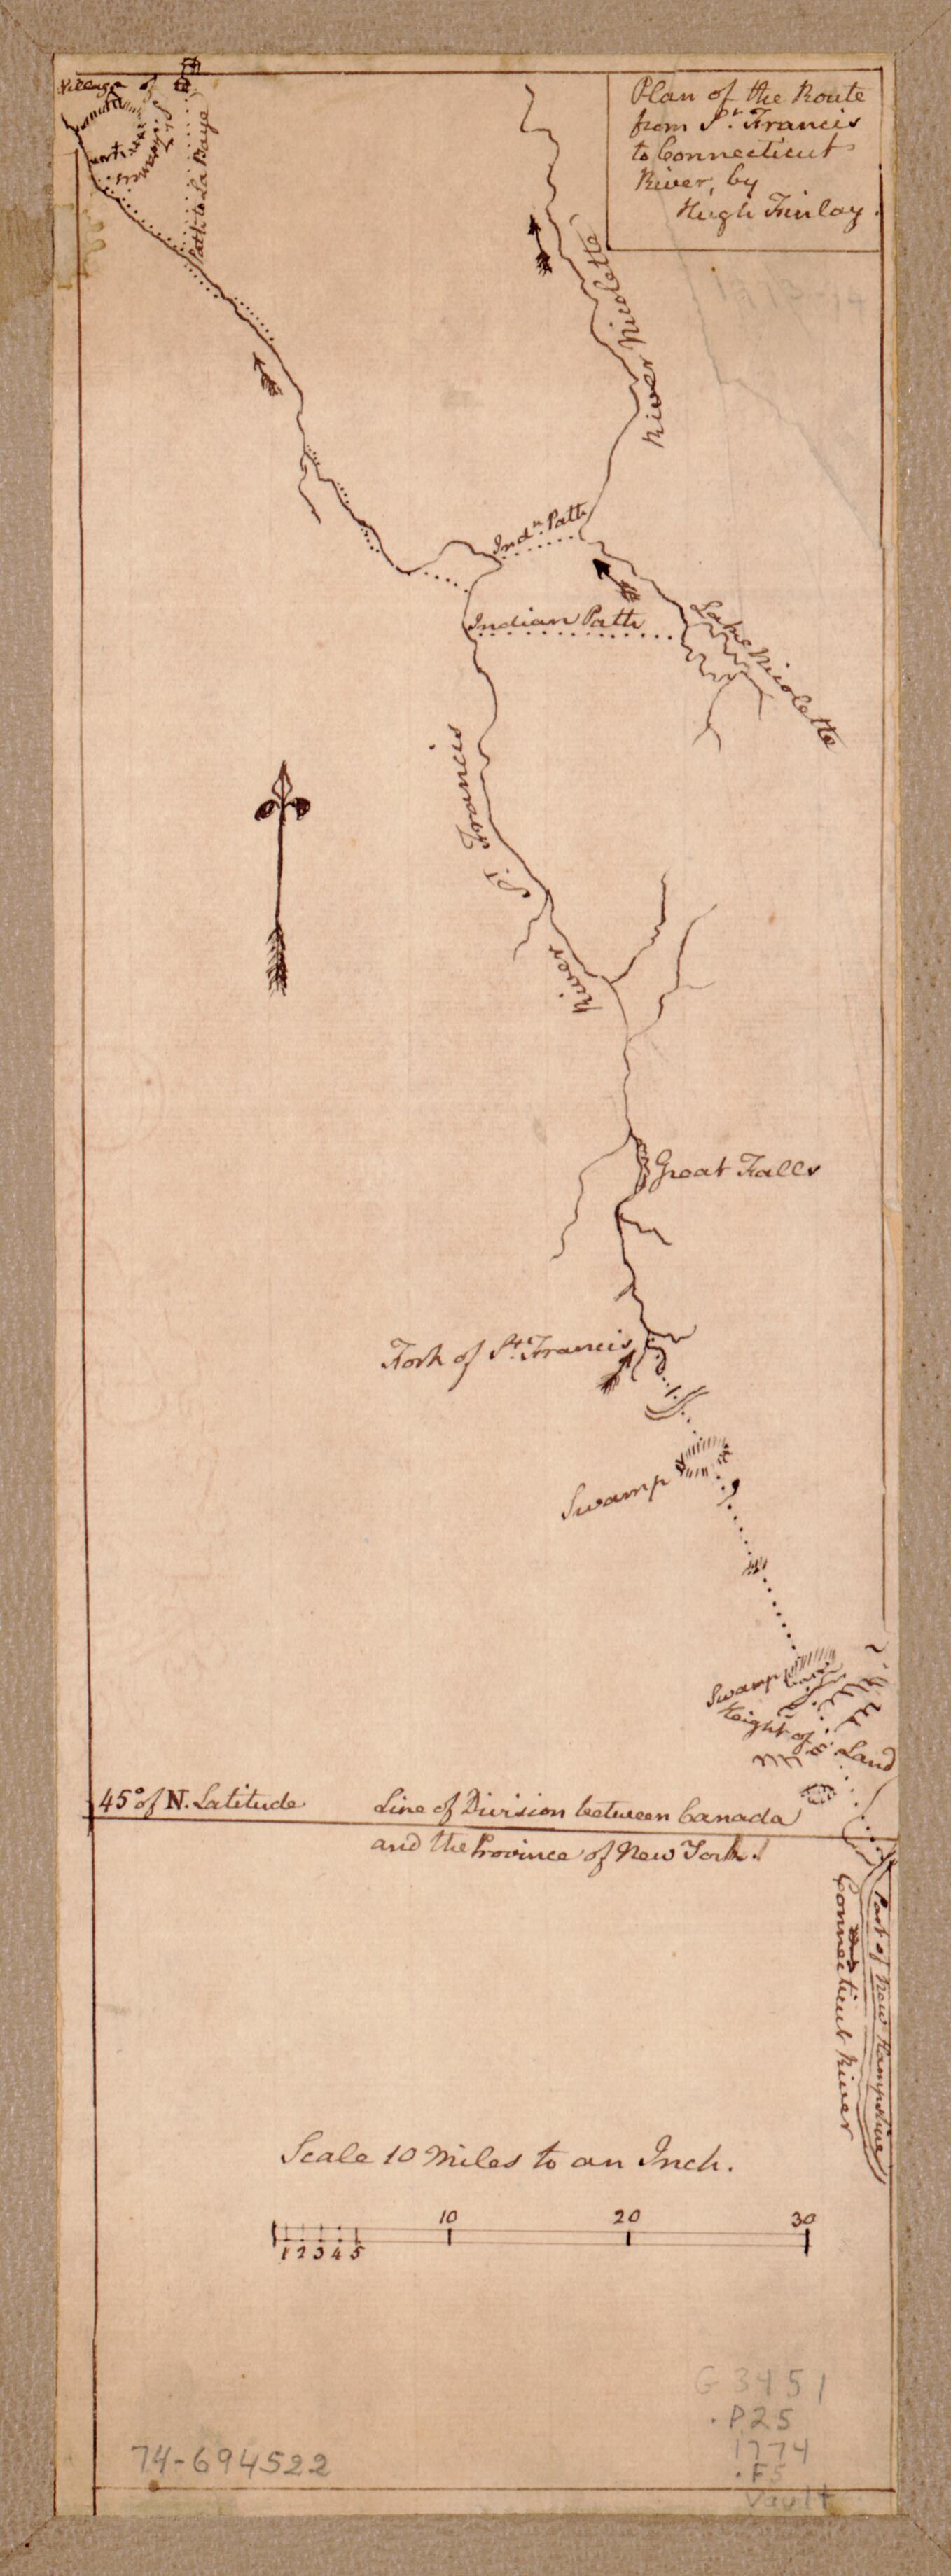 Plan of the Route
from St. Francis
to Connecticut
River, by
Hugh Finlay.
1773-74
Village of
St. Francis
Path to La Baye
River Nicolette
Indn. Path
Indian Path
Lake Nicolette
St. Francis
River
Great Falls
Fork of St. Francis
Swamp
Swamp
Height of Land
45° of N. Latitude
Line of Division between Canada
and the Province of New York.
Connecticut River
Part of New Hampshire
Scale 10 Miles to an Inch.
10 20 30
1 2 3 4 5
G 3451
.P25
1774
.F5
Vault
74-694522